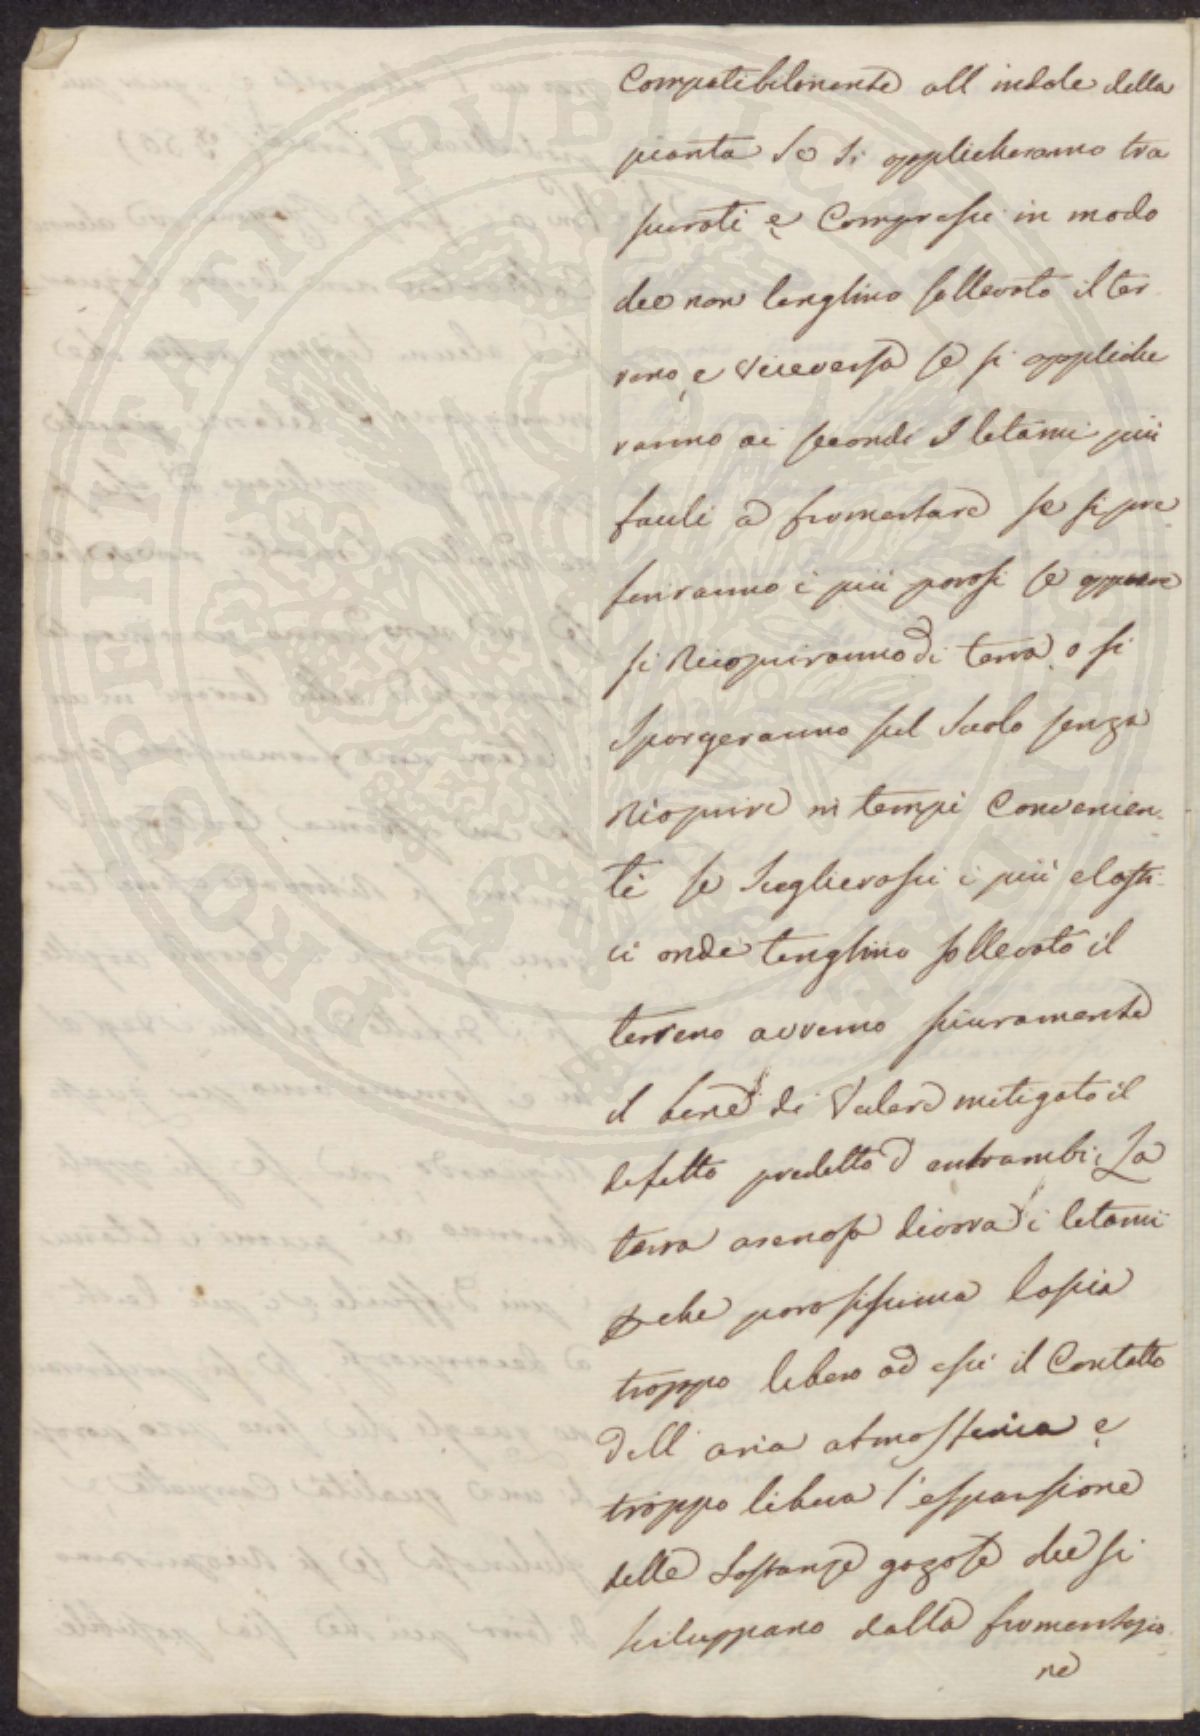 Compatibilmente all' indole della
pianta Se Si applicheranno tra
scurati e Compressi in modo
che non tenghino sollevato il ter
reno, e viceversa se si appliche
ranno ai secondi I letami più
facili a fromentare se si pre
feriranno i più porosi se oppure
si Ricopriranno di terra o si
Sporgeranno sul Suolo senza
Ricoprire in tempi Convenien-
ti se Sceglierassi i più elasti-
ci onde tenghino sollevato il
terreno avremo sicuramente
il bene di Veder mitigato il
defetto predetto d' entrambi, La
terra arenosa divora i letami
che porosissima lascia
troppo libero ad essi il Contatto
dell' aria atmosferica e
troppo libera l'espansione
delle Sostanze gazose che si
sviluppano dalla fromentazio-
ne
PROSPERITATI PVBLICAE